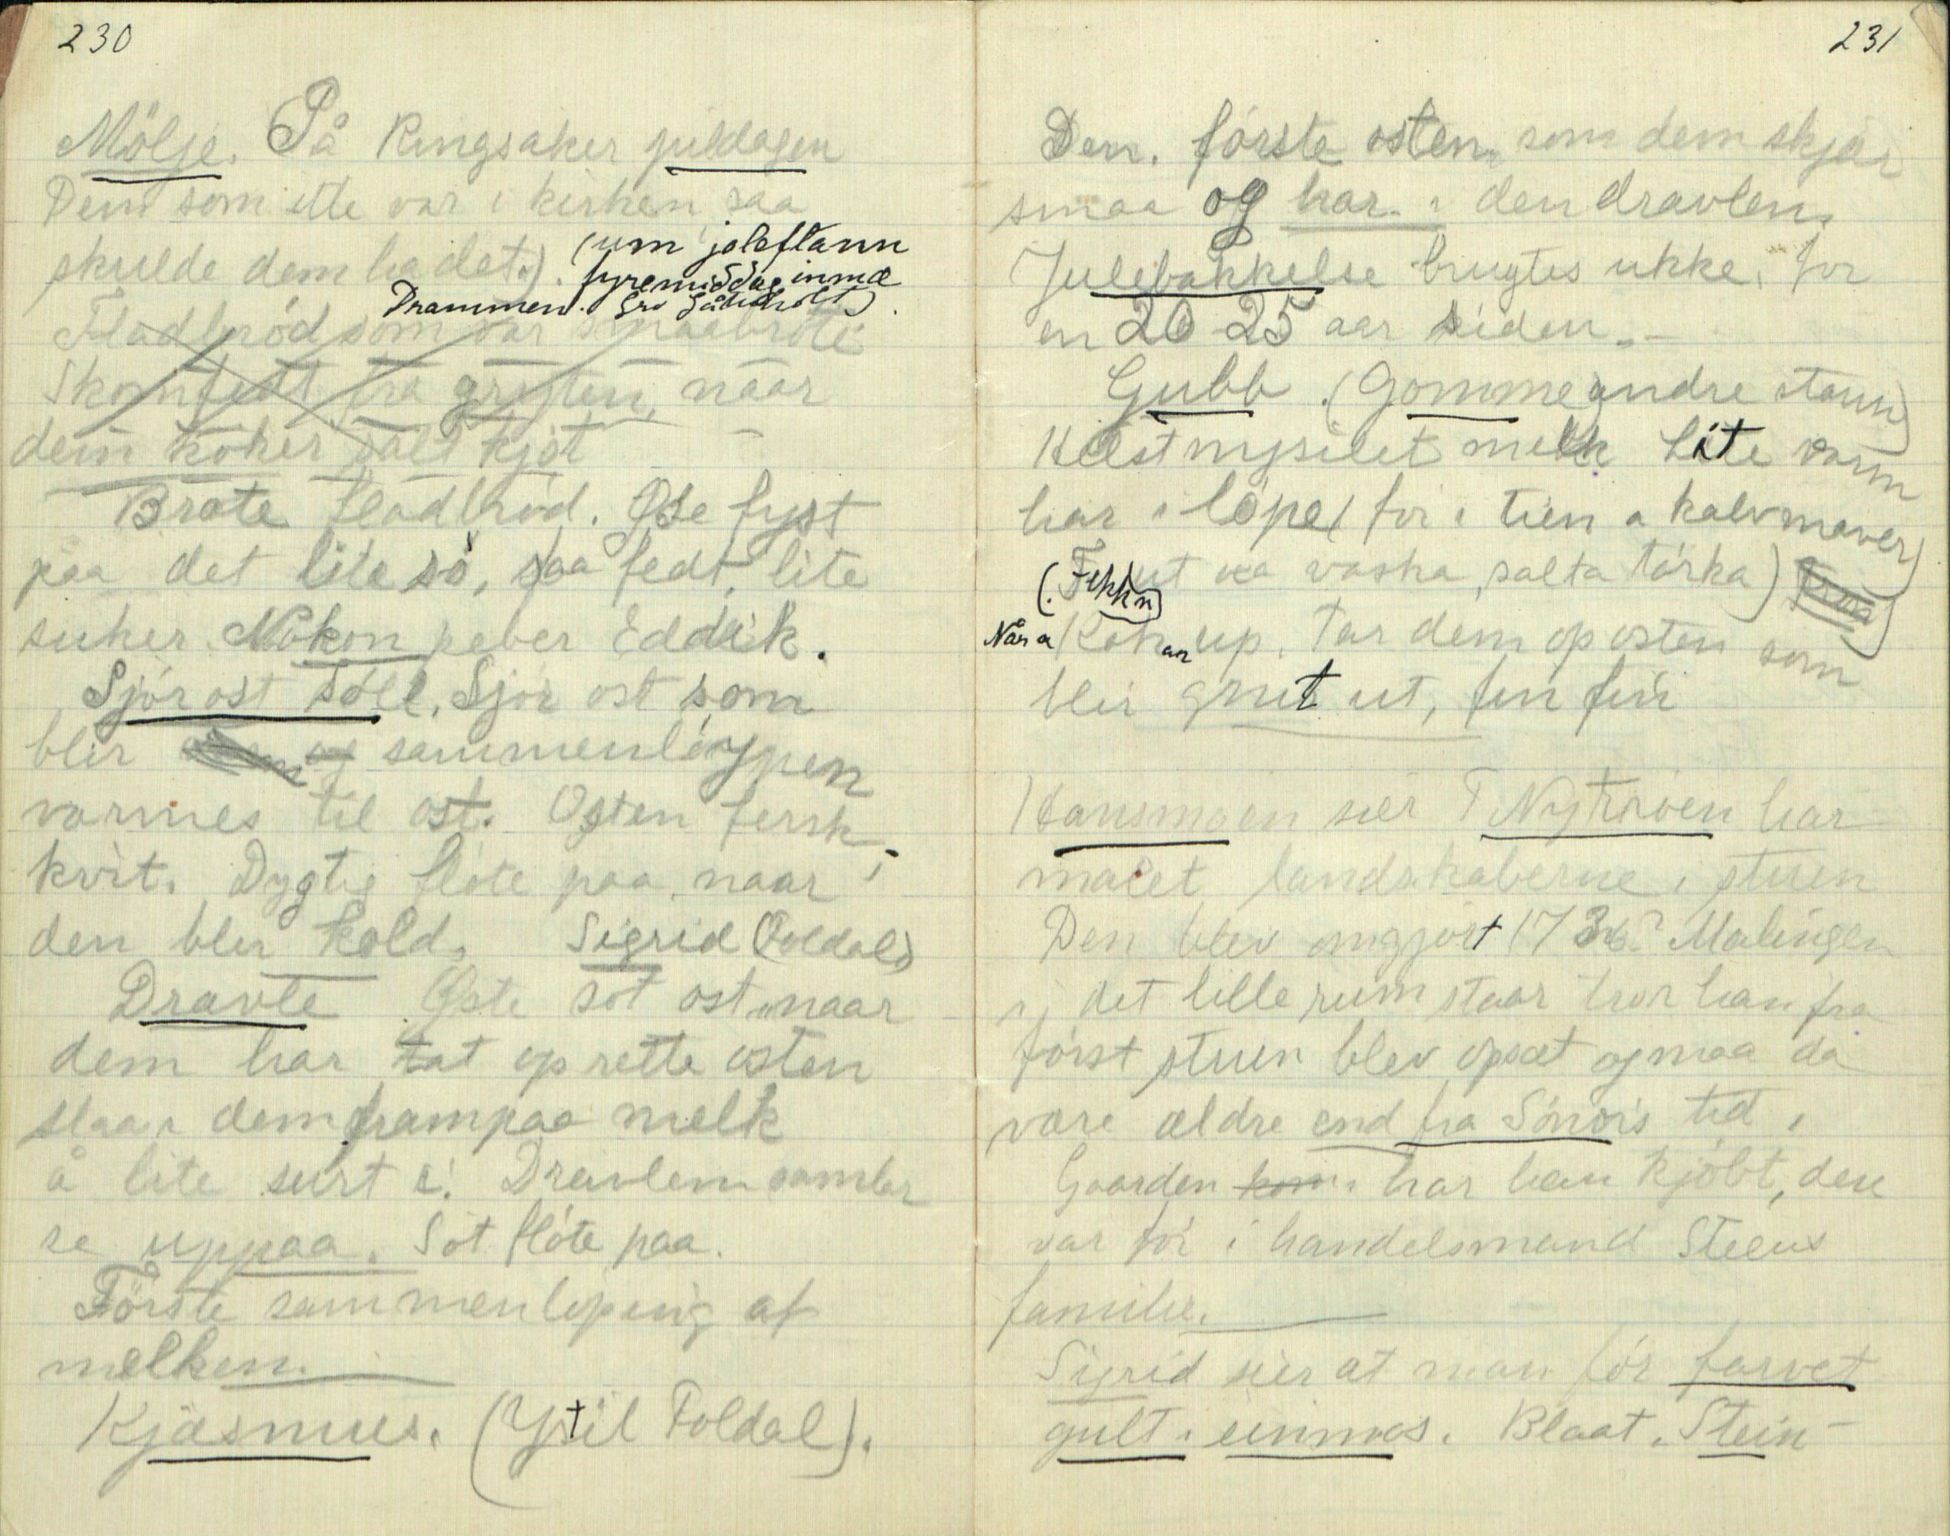 230
Mölje. På Ringsaker juldagen
Dem som itte var i kirken saa
skulde dem ha det.). (um joleftann
fyremiddag inmæ
Drammen.
Fladbröd som var smaabröte
Skomfedt fra gryten, naar
dem koker salt kjöt
Brote fladbröd. Ose fyst
paa det lite so, saa fedt, lite
suker. Nokon peber Eddik.
Sjörost söll. Sjör ost som
blir sammenlöypen
varmes til ost. Osten fersk,
kvit. Dygtig flöte paa, naar
den blir kold. Sigrid (Foldal)
Dravle Öste söt ost naar
dem har tat op rette osten
slaar dem frampaa melk
å lite surt i. Dravlem samler
se uppaa. Söt flöte paa.
Förste sammenlöping af
melken.
Kjæsmus. (Ystil Foldal).
231
Den. förste osten som dem skjær
smaa og har i den dravlen.
Julebakkelse brugtes ikke for
en 20-25 aar siden.
Gubb. (Gomme andre staun)
Hélst nysilet melk Lite varm
har i löpe (for i tien a kalvmaver)
ut va vaska, salta törka)
Når a Kok an up. Tar dem op osten som
blir grut ut, fin fin
Hansmoen sier T Nytröen har
malet landskaberne i stuen
Den blev omgjort 1736? Malingen
i det lille rum staar tror han fra
först stuen blev opsat og maa da
være ældre end fra Sönois tid.
Gaarden kom har han kjöbt, den
var för i handelsmand Steens
familie.
Sigrid sier at man för farvet
gult i einmos. Blaat. Stein-